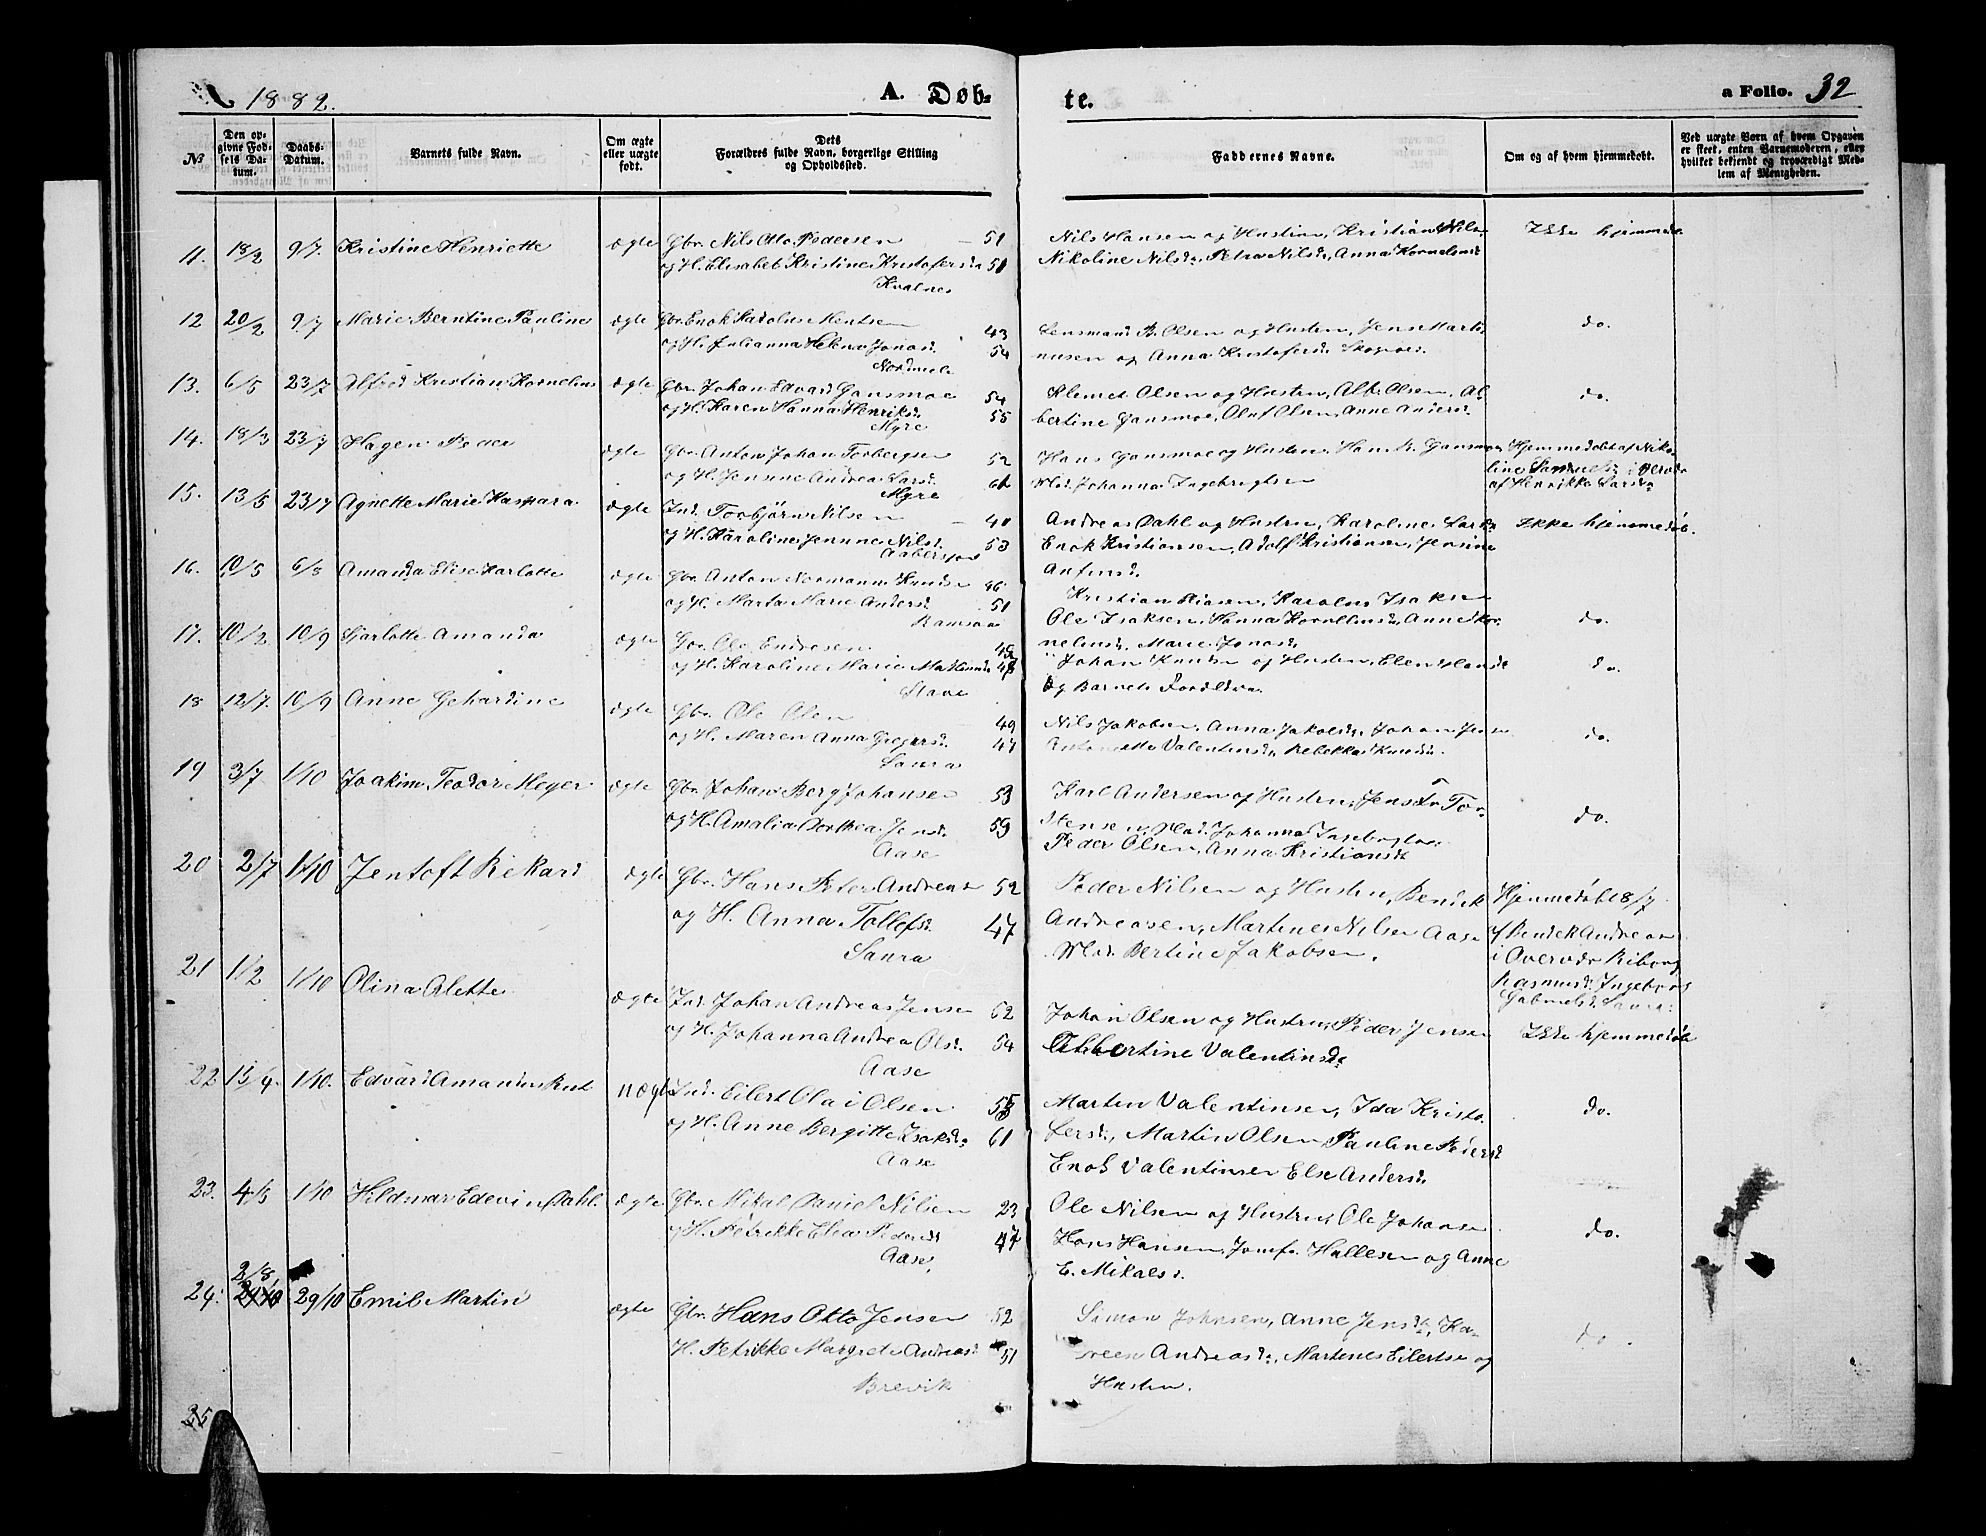 1882.
A. Døb-
te.
a Folio. 32
№
Den op-
givne Fød-
sels Da-
tum.
Daabs-
Datum.
Barnets fulde Navn.
Om ægte
eller uægte
født.
Dets
Forældres fulde Navn, borgerlige Stilling
og Opholdssted.
Faddernes Navne.
Om og af hvem hjemmedøbt.
Ved uægte Børn af hvem Opgaven
er skeet, enten Barnemoderen, eller
hvilket bekjendt og troværdigt Med-
lem af Menigheden.
11. 18/2 9/7. Kristine Henriette ægte Gbr. Nils Otto Pedersen 51
og H. Elisabet Kristine Kristofersda 51
Kvalnes
Nils Hansen og Hustru, Kristian Nils-
Nikoline Nilsd., Petra Nilsd., Anna Kornelius
Ikke hjemmedø.
12 20/2 9/7 Marie Berntine Pauline ægte Gbr. Enok Karolus Mentsen 43
og H. Julianna Helena Jonasd. 54
Nordmele
Lensmand B. Olsen og Hustru, Jens Marti-
nusen og Anna Kristofersd.
do.
13. 6/5 23/7 Alfred Kristian Kornelius ægte Gbr. Johan Edvard Gansmoe 54
og H. Karen Hanna Henriksd. 55
Myre
Klemet Olsen og Hustru, Alb. Olsen, Al-
bertine Gansmoe, Oluf Olsen, Anne Andersd.
do.
14. 18/3 23/7 Hagen Peder ægte Gbr. Anton Johan Torbergsen 52
og H. Jensine Andrea Larsd.
Myre
Hans Gansmoe og Hustru, Hans P. Gansmoe
Mad. Johanna Ingebrigtsen
Hjemmedøbt af Niko-
line Samuelsd. i Overvær
af Henrikke Larsd.
15. 13/5 23/7 Agnette Marie Kaspara ægte Ind. Torbjørn Nilsen 40
og H. Karoline Jennne Nilsd. 53
Andreas Dahl og Hustru, Karoline Larsd.
Enok Kristiansen, Adolf Kristiansen, Jensine
Anfinsd.
Ikke hjemmedøb.
16. 10/5 6/8 Amanda Elise Karlotte ægte Gbr. Anton Normann Knudsen 46
og H. Marta Marie Andersd. 51
Ramsaa
Kristian Hiasen, Karolus Isaksen
Ole Isaksen, Hanna Kornelius, Anne Kor-
neliusd., Marie Jonasd.
do.
17. 10/2 10/9 Sjarlotte Amanda ægte Gbr. Ole Endresen 45
og H. Karoline Marie 48
Stave
Johan Knudsen og Hustru, Elen Hansd.
og Barnets Forældre.
do.
18 12/7. 10/9 Anne Gehardine ægte Gbr. Ole Olsen 49
og H. Maren Anna Gregersd. 47
Saura
Nils Jakobsen, Anna Jakobsd., Johan Jensen
Antonette Valentinsd., Rebekka Knudsd.
do.
19 3/7 1/10 Joakim Teodor Meyer ægte Gbr. Johan Berg Johansen 53
og H. Amalia Dorthea Jensd. 59
Aase
Karl Andersen og Hustru, Jens Tor-
stensen, Mad. Johanna Ingebrigtsen
Peder Olsen, Anna Kristiansd.
do.
20 2/7 1/10 Jentoft Rikard ægte Gbr. Hans Peter Andreas 52
og H. Anna Tollefsd. 47
Saura
Peder Nilsen og Hustru, Benrik
Andreasen, Martines Nilsen Aase
Mad. Bertine Jakobsen.
Hjemmedøbt 8/7
af Benrik Andreas
i Overvær Riborg
Rasmusd. Ingeborg
Gabrielsd. Saura.
21 1/2 1/10 Olina Alette ægte Ind. Johan Andreas Jensen 52
og H. Johanna Andrea Olsd. 54
Aase
Johan Olsen og Hustru, Peder Jensen
Albertine Valentinsd.
Ikke hjemmedøb
22 15/4. 1/10. Edvard Amandus Kut uægte Ind. Eilert Olai Olsen 55
og H. Anne Bergitte Isaksd. 61
Aase
Martin Valentinsen, Ida Kristo-
fersd., Martin Olsen Pauline Pedersd.
Enok Valentinsen Else Andersd.
do.
23. 4/5 1/10 Hildmar Edevin Dahl. ægte Gbr. Mikal Daniel Nilsen 23
og H. Petrikke Elea Pedersd. 47
Aase,
Ole Nilsen og Hustru, Ole Johansen
Hans Hansen, Jomfr. Hallesen og Anne
E. Mikaelsd.
do.
24. 2/8, 29/10 Emil Martin ægte Gbr. Hans Otto Jensen 52
H. Petrikke Margrete Andreasd. 51
Brevik
Simon Johnsen, Anne Jensd., Ka-
reen Andreasd., Martenes Eilertsen og
Hustru.
do.
25